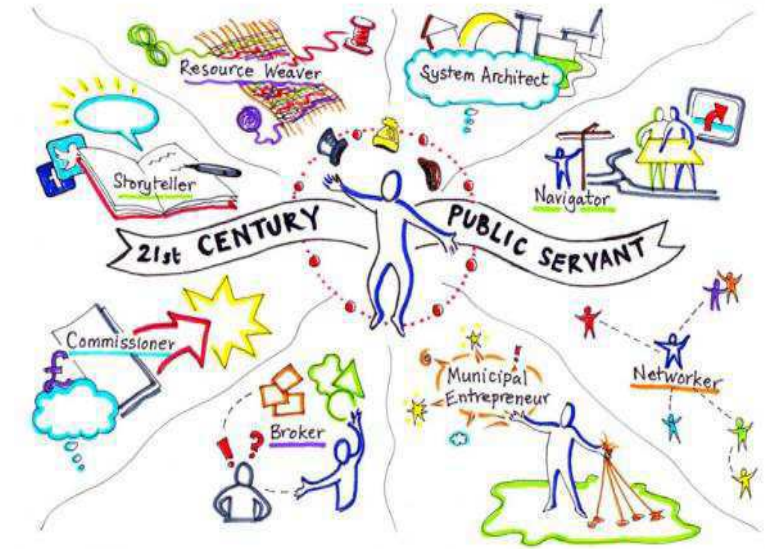 Resource Weaver
System Architect
Storyteller
Navigator
21st CENTURY
PUBLIC SERVANT
Commissioner
£
Municipal
Entrepreneur
!
Networker
Broker
! ?